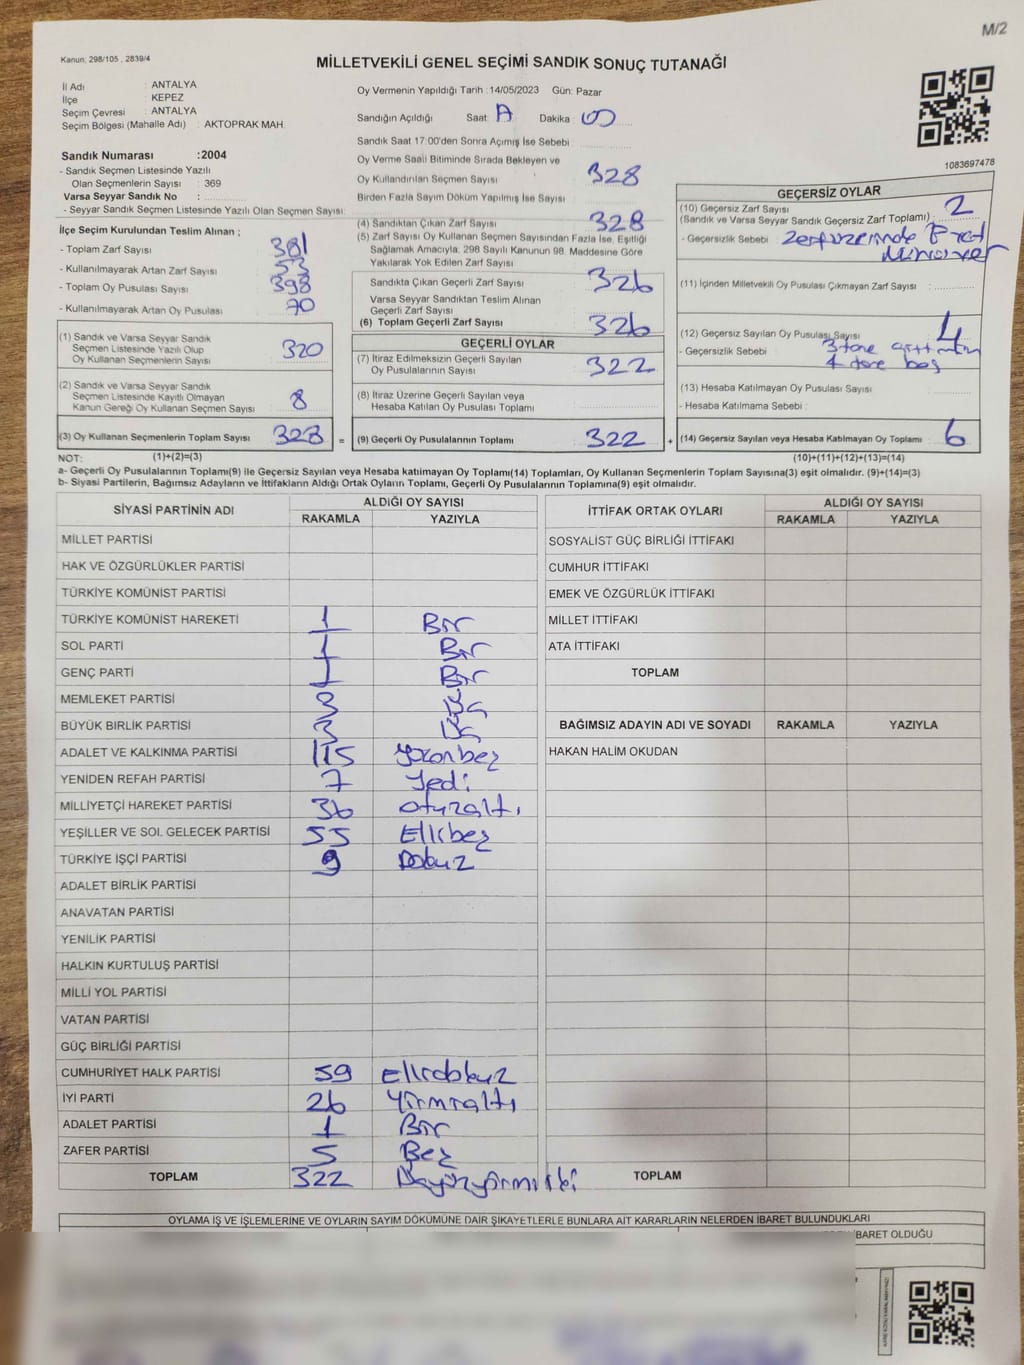 M/2
Kanun: 298/105 , 2839/4
MİLLETVEKİLİ GENEL SEÇİMİ SANDIK SONUÇ TUTANAĞI
İl Adı : ANTALYA
İlçe : KEPEZ
Seçim Çevresi : ANTALYA
Seçim Bölgesi (Mahalle Adı) : AKTOPRAK MAH.
Oy Vermenin Yapıldığı Tarih : 14/05/2023 Gün: Pazar
Sandığın Açıldığı Saat Dakika
Sandık Saat 17:00'den Sonra Açılmış İse Sebebi
Sandık Numarası :2004
- Sandık Seçmen Listesinde Yazılı
Olan Seçmenlerin Sayısı : 369
Varsa Seyyar Sandık No :
- Seyyar Sandık Seçmen Listesinde Yazılı Olan Seçmen Sayısı:
Oy Verme Saati Bitiminde Sırada Bekleyen ve
Oy Kullandırılan Seçmen Sayısı 328
Birden Fazla Sayım Döküm Yapılmış İse Sayısı
1083697478
İlçe Seçim Kurulundan Teslim Alınan ;
- Toplam Zarf Sayısı 381
- Kullanılmayarak Artan Zarf Sayısı 53
- Toplam Oy Pusulası Sayısı 398
- Kullanılmayarak Artan Oy Pusulası 70
(1) Sandık ve Varsa Seyyar Sandık
Seçmen Listesinde Yazılı Olup
Oy Kullanan Seçmenlerin Sayısı 320
(2) Sandık ve Varsa Seyyar Sandık
Seçmen Listesinde Kayıtlı Olmayan
Kanun Gereği Oy Kullanan Seçmen Sayısı 8
(3) Oy Kullanan Seçmenlerin Toplam Sayısı 328 =
(4) Sandıktan Çıkan Zarf Sayısı 328
(5) Zarf Sayısı Oy Kullanan Seçmen Sayısından Fazla İse, Eşitliği
Sağlamak Amacıyla, 298 Sayılı Kanunun 98. Maddesine Göre
Yakılarak Yok Edilen Zarf Sayısı
Sandıkta Çıkan Geçerli Zarf Sayısı 326
Varsa Seyyar Sandıktan Teslim Alınan
Geçerli Zarf Sayısı :
(6) Toplam Geçerli Zarf Sayısı 326
GEÇERLİ OYLAR
(7) İtiraz Edilmeksizin Geçerli Sayılan
Oy Pusulalarının Sayısı 322
(8) İtiraz Üzerine Geçerli Sayılan veya
Hesaba Katılan Oy Pusulası Toplamı
(9) Geçerli Oy Pusulalarının Toplamı 322 +
GEÇERSİZ OYLAR
(10) Geçersiz Zarf Sayısı
(Sandık ve Varsa Seyyar Sandık Geçersiz Zarf Toplamı) : 2
- Geçersizlik Sebebi
(11) İçinden Milletvekili Oy Pusulası Çıkmayan Zarf Sayısı :
(12) Geçersiz Sayılan Oy Pusulası Sayısı 4
- Geçersizlik Sebebi 3 tane
4 tane boş
(13) Hesaba Katılmayan Oy Pusulası Sayısı
- Hesaba Katılmama Sebebi :
(14) Geçersiz Sayılan veya Hesaba Katılmayan Oy Toplamı 6
NOT: (1)+(2)=(3) (10)+(11)+(12)+(13)=(14)
a- Geçerli Oy Pusulalarının Toplamı(9) ile Geçersiz Sayılan veya Hesaba katılmayan Oy Toplamı(14) Toplamları, Oy Kullanan Seçmenlerin Toplam Sayısına(3) eşit olmalıdır. (9)+(14)=(3)
b- Siyasi Partilerin, Bağımsız Adayların ve İttifakların Aldığı Ortak Oyların Toplamı, Geçerli Oy Pusulalarının Toplamına(9) eşit olmalıdır.
SİYASİ PARTİNİN ADI ALDIĞI OY SAYISI
RAKAMLA YAZIYLA
MİLLET PARTİSİ
HAK VE ÖZGÜRLÜKLER PARTİSİ
TÜRKİYE KOMÜNİST PARTİSİ
TÜRKİYE KOMÜNİST HAREKETİ 1 Bir
SOL PARTİ 1 Bir
GENÇ PARTİ 1 Bir
MEMLEKET PARTİSİ 3 Üç
BÜYÜK BİRLİK PARTİSİ 3 Üç
ADALET VE KALKINMA PARTİSİ 115 yüzonbeş
YENİDEN REFAH PARTİSİ 7 Yedi
MİLLİYETÇİ HAREKET PARTİSİ 36 otuzaltı
YEŞİLLER VE SOL GELECEK PARTİSİ 55 Ellibeş
TÜRKİYE İŞÇİ PARTİSİ 9 Dokuz
ADALET BİRLİK PARTİSİ
ANAVATAN PARTİSİ
YENİLİK PARTİSİ
HALKIN KURTULUŞ PARTİSİ
MİLLİ YOL PARTİSİ
VATAN PARTİSİ
GÜÇ BİRLİĞİ PARTİSİ
CUMHURİYET HALK PARTİSİ 59 Ellidokuz
İYİ PARTİ 26 Yirmialtı
ADALET PARTİSİ 1 Bir
ZAFER PARTİSİ 5 Beş
TOPLAM 322
İTTİFAK ORTAK OYLARI ALDIĞI OY SAYISI
RAKAMLA YAZIYLA
SOSYALİST GÜÇ BİRLİĞİ İTTİFAKI
CUMHUR İTTİFAKI
EMEK VE ÖZGÜRLÜK İTTİFAKI
MİLLET İTTİFAKI
ATA İTTİFAKI
TOPLAM
BAĞIMSIZ ADAYIN ADI VE SOYADI RAKAMLA YAZIYLA
HAKAN HALİM OKUDAN
TOPLAM
OYLAMA İŞ VE İŞLEMLERİNE VE OYLARIN SAYIM DÖKÜMÜNE DAİR ŞİKAYETLERLE BUNLARA AİT KARARLARIN NELERDEN İBARET BULUNDUKLARI
BARET OLDUĞU